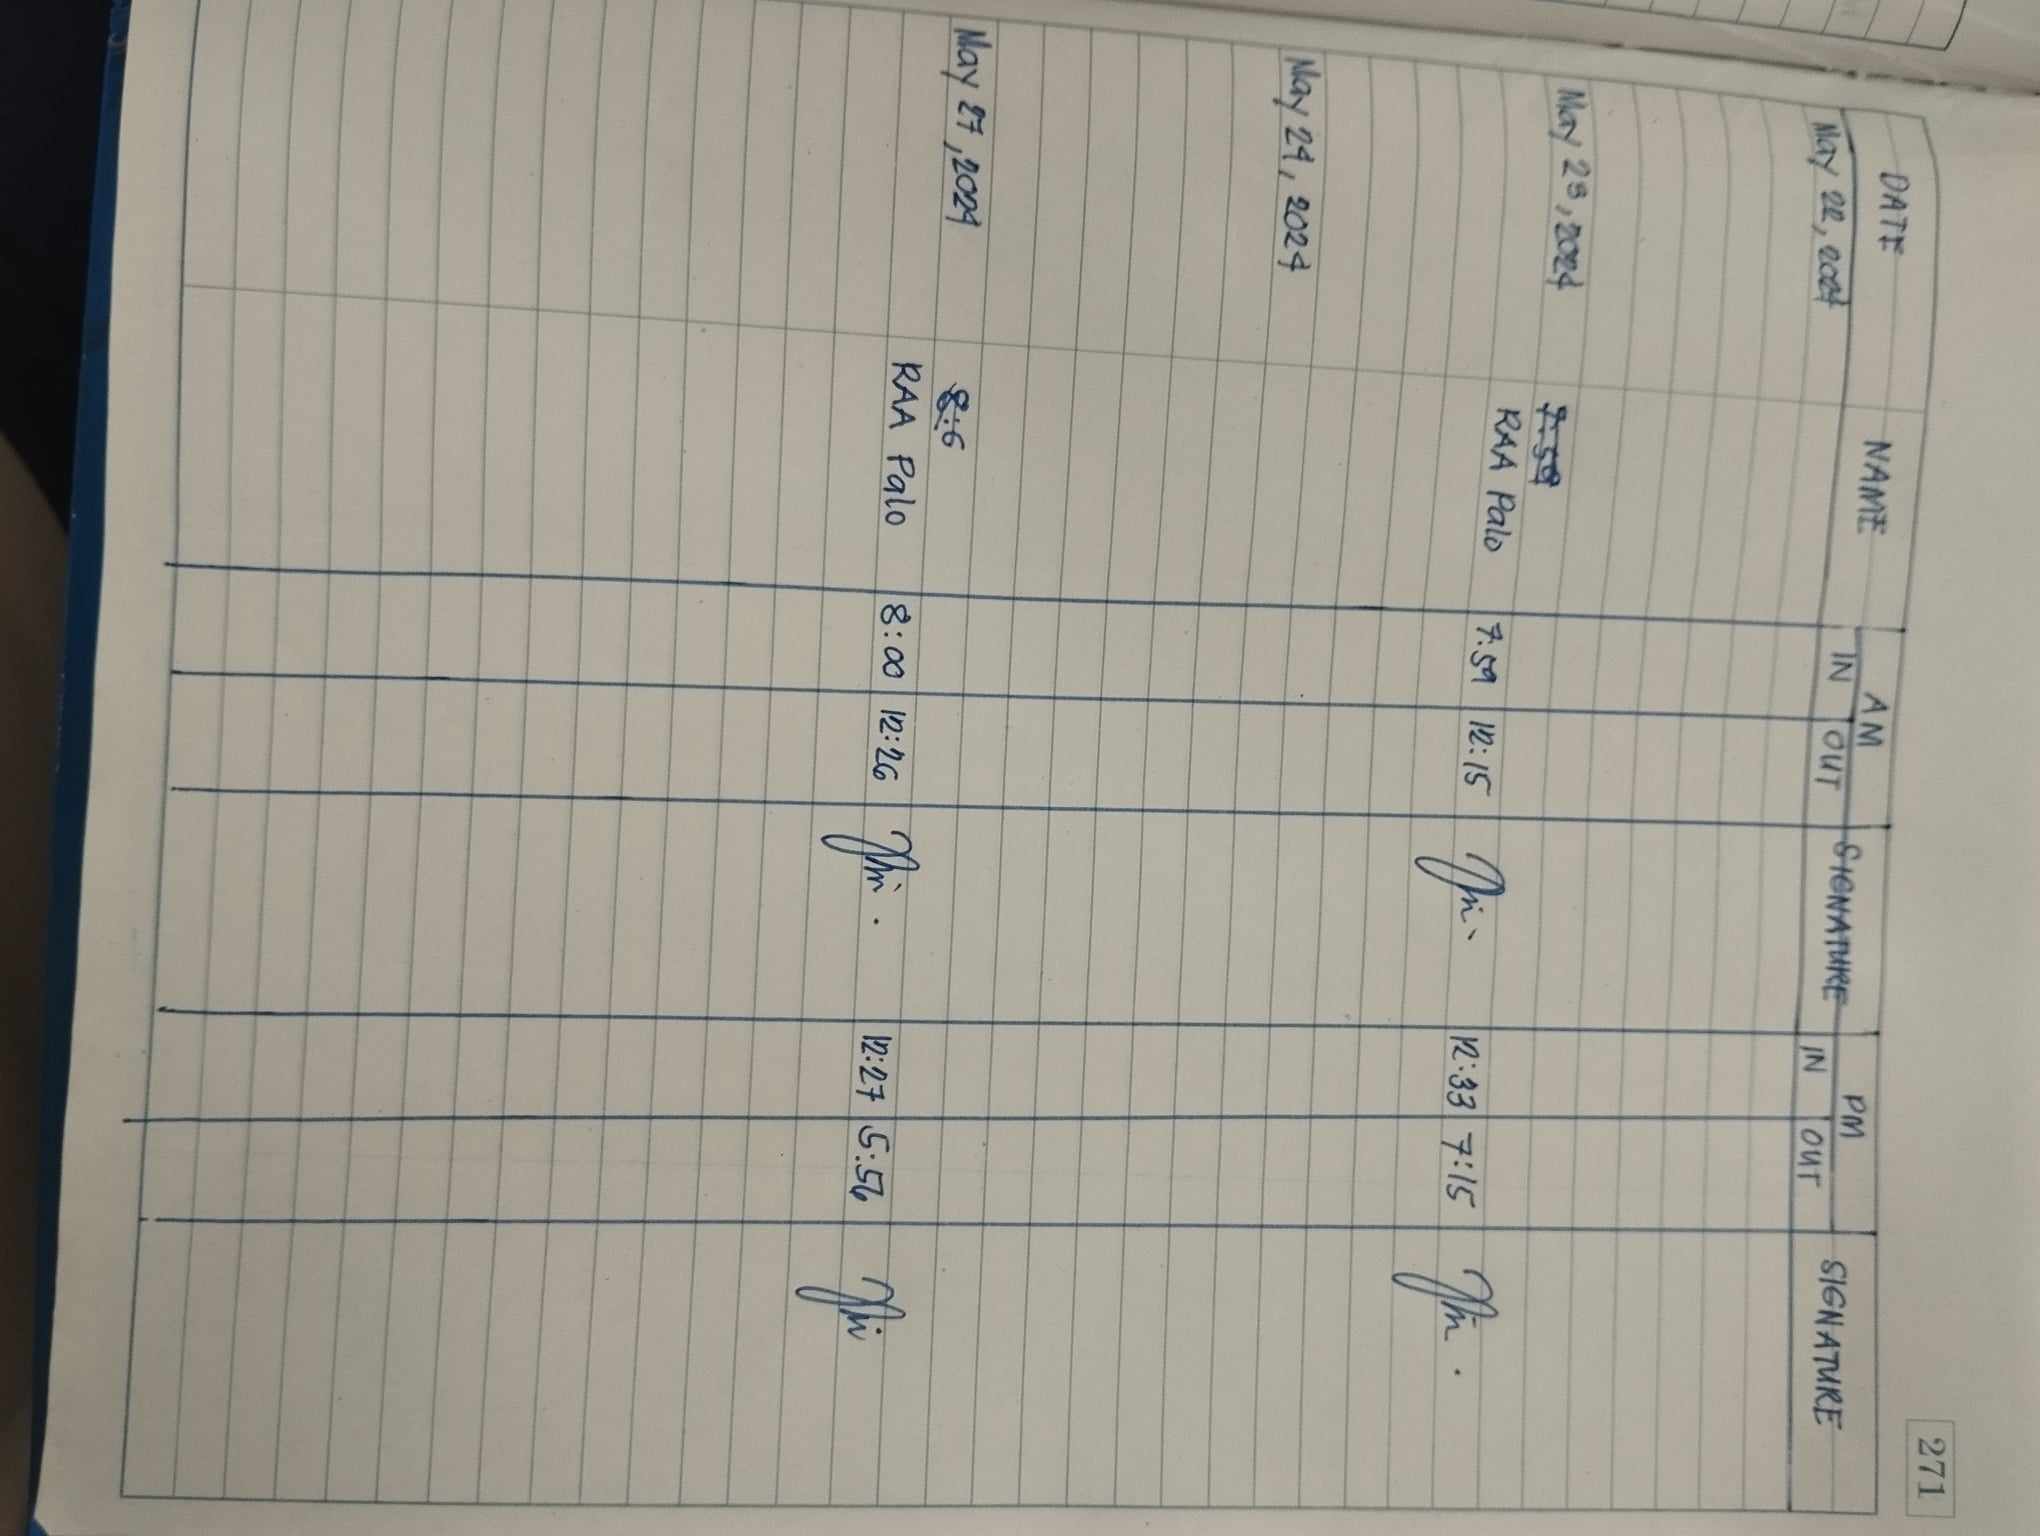 271
DATE NAME AM SIGNATURE PM SIGNATURE
IN OUT IN OUT
May 22, 2024
May 23, 2024 7:59
RAA Palo 7:59 12:15 12:33 7:15
May 24, 2024
May 27, 2024 8:6
RAA Palo 8:00 12:26 12:27 5:56